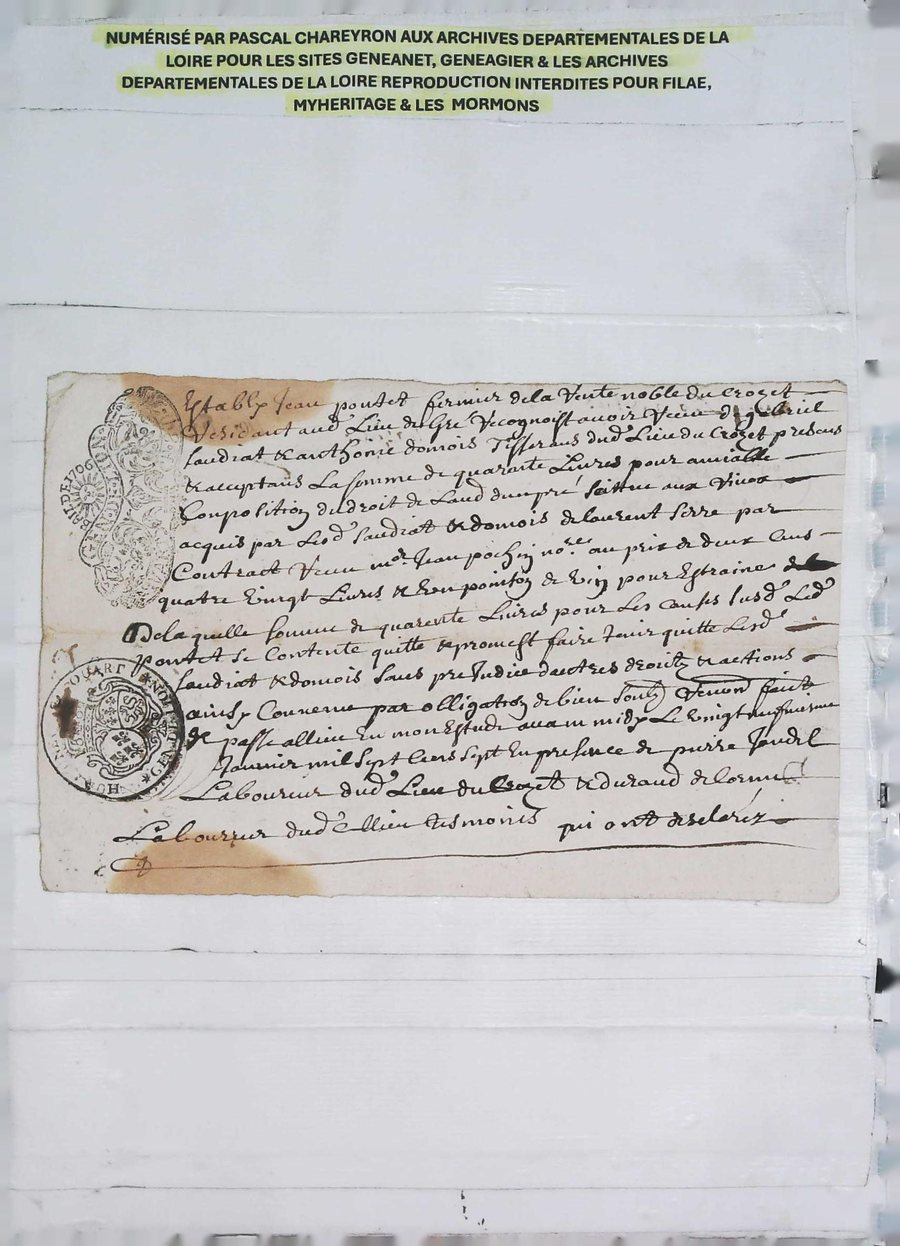 NUMÉRISÉ PAR PASCAL CHAREYRON AUX ARCHIVES DEPARTEMENTALES DE LA
LOIRE POUR LES SITES GENEANET, GENEAGIER & LES ARCHIVES
DEPARTEMENTALES DE LA LOIRE REPRODUCTION INTERDITES POUR FILAE,
MYHERITAGE & LES MORMONS
BAIL DE 1706
GENERALITE DE LION
Establx Jean pontet fermier dela Rente noble du Crozet
Residant aud Lieu de Gré Recognoist avoir Receu de
saudrat & anthonie domois Tisserans dud Lieu du Crozet presens
& acceptans La somme de quarante Livres pour amiable
Conposition du droit de Laud dun pré scittue aux
acquis par Lesd saudrat & domois de laurent serre par
Contract Receu mr Jean pochin nore au prix de deux Cens
quatre vingt Livres & un poinson de vin pour Estraine
De laquelle somme de quarente Livres pour Les causes susd Led
pontet se Contente quitte & promest faire tenir quitte Lesd
saudrat & domois sans preJudice dautres droitz & actions
ainsy Convenu par obligation de bien
& passe allieu En mon Estude avant midy Le vingt neufviesme
Janvier mil sept Cens sept En presence de pierre
Laboureur dud Lieu du Crozet & durand
Laboureur dud allieu tesmoins qui ont desclarez